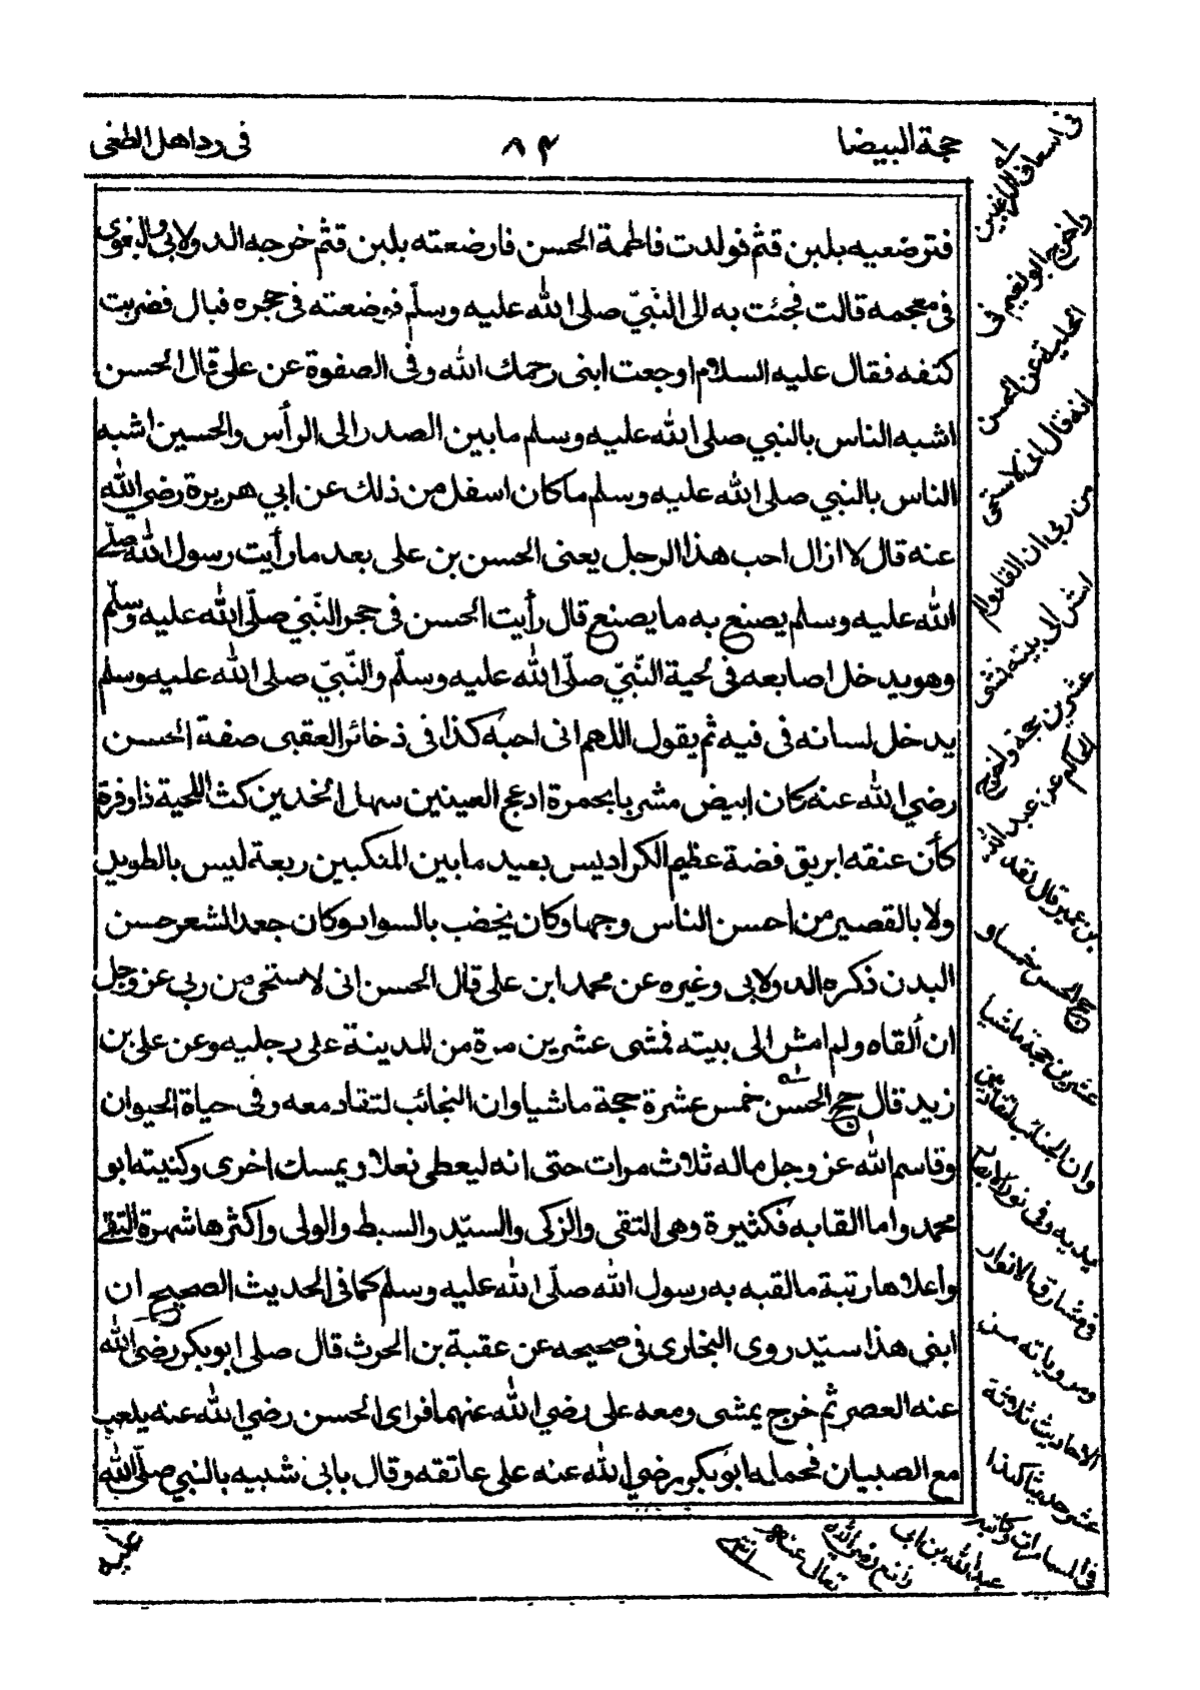 حجة البيضا ٨٢ فى رد اهل الطغى
فترضعيه بلبن قثم فولدت فاطمة الحسن فارضعته بلبن قثم خرجه الدولابى والبغوى
فى معجمه قالت فجئت به الى النّبىّ صلى الله عليه وسلّم فوضعته فى حجره فبال فضربت
كتفه فقال عليه السلام اوجعت ابنى رحمك الله وفى الصفوة عن على قال الحسن
اشبه الناس بالنبي صلى الله عليه وسلم مابين الصدر الى الرأس والحسين اشبه
الناس بالنبي صلى الله عليه وسلم ماكان اسفل من ذلك عن ابي هريرة رضي الله
عنه قال لا ازال احب هذا الرجل يعنى الحسن بن على بعد مارأيت رسول الله صلى
الله عليه وسلم يصنع به ما يصنع قال رأيت الحسن فى حجر النّبىّ صلّى الله عليه وسلّم
وهو يدخل اصابعه فى لحية النّبيّ صلّى الله عليه وسلّم والنّبيّ صلى الله عليه وسلم
يدخل لسانه فى فيه ثم يقول اللهم انى احبه كذا فى ذخائر العقبى صفة الحسن
رضي الله عنه كان ابيض مشربا بحمرة ادعج العينين سهل الخدين كث اللحية ذا وفرة
كأن عنقه ابريق فضة عظيم الكراديس بعيد مابين المنكبين ربعة ليس بالطويل
ولا بالقصير من احسن الناس وجها وكان يخضب بالسواد وكان جعد الشعر حسن
البدن ذكره الدولابى وغيره عن محمد ابن على قال الحسن انى لاستحى من ربى عز وجل
ان ألقاه ولم امش الى بيته فمشى عشرين مرة من المدينة على رجليه وعن على بن
زيد قال حج الحسن خمس عشرة حجة ماشيا وان النجائب لتقاد معه وفى حياة الحيوان
وقاسم الله عز وجل ماله ثلاث مرات حتى انه ليعطى نعلا ويمسك اخرى وكنيته ابو
محمد واما القابه فكثيرة وهى التقى والزكى والسيّد والسبط والولى واكثرها شهرة التقى
وأعلاها رتبة ما لقبه به رسول الله صلّى الله عليه وسلم كما فى الحديث الصحيح ان
ابنى هذا سيّد روى البخارى فى صحيحه عن عقبة بن الحرث قال صلى ابوبكر رضي الله
عنه العصر ثم خرج يمشى ومعه على رضي الله عنهما فراى الحسن رضي الله عنه يلعب
مع الصبيان فحمله ابوبكر رضي الله عنه على عاتقه وقال بابى شبيه بالنبي صلّى الله
عليه
فى اسعاف الراغبين
واخرج ابو نعيم فى
الحلية عن الحسن
انه قال انى لاستحى
من ربى ان القاه ولم
امش الى بيته فمشى
عشرين حجة واخرج
الحاكم عن عبد الله
بن عمير قال لقد
حج الحسن خمسا و
عشرين حجة ماشيا
وان الجنائب لتقاد بين
يديه وفى نور الابصار
فى مشارق الانوار
ومروياته من
الاحاديث ثلاثة
عشر حديثا كذا
فى المسامرات وكاتبه
عبد الله بن ابى
رافع رضي الله
تعالى عنه